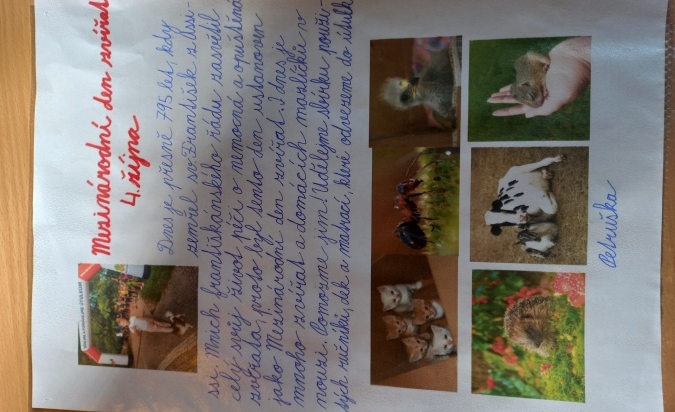 Mezinárodní den zvířat
4. října
Dnes je přesně 795 let, kdy
zemřel sv. František z Assi-
ssi. Mnich františkánského řádu zasvětil
celý svůj život péči o nemocná a opuštěná
zvířata, proto byl tento den ustanoven
jako Mezinárodní den zvířat. I dnes je
mnoho zvířat a domácích mazlíčků v
nouzi. Pomozme jim! Udělejme sbírku použi-
tých ručníků, dek a matrací, které odvezeme do útulk
Petruška